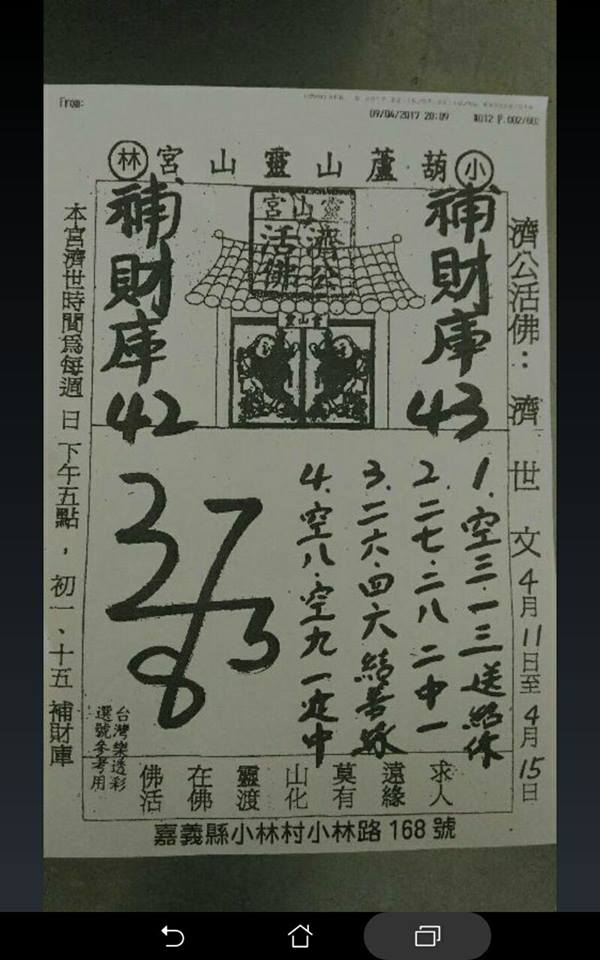 From:
09/04/2017 20:09
小葫蘆山靈山宮林
濟公活佛：濟世文4月11日至4月15日
補財庫43
靈山宮
濟公
活佛
靈山宮
補財庫42
1.空三.一三送給你
2.二七.二八二中一
3.二六.四六結善緣
4.空八.空九一定中
37
8 3
台灣樂透彩
選號參考用
求人
遠緣
莫有
山化
靈渡
在佛
佛活
本宮濟世時間為每週日下午五點，初一、十五補財庫
嘉義縣小林村小林路168號